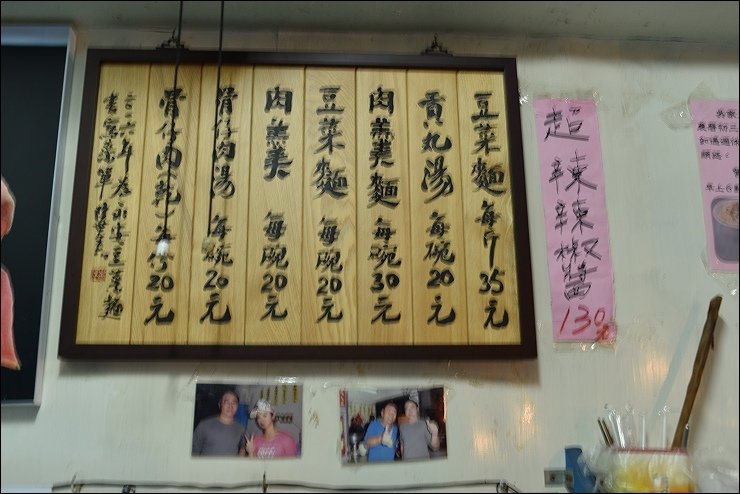 豆菜麵每斤35元
貢丸湯每碗20元
肉羹麵每碗30元
豆菜麵每碗20元
肉羹每碗20元
骨仔肉湯每碗20元
骨仔肉乾每份20元
永安豆菜麵
書寫菜單
超辣辣椒醬
130元